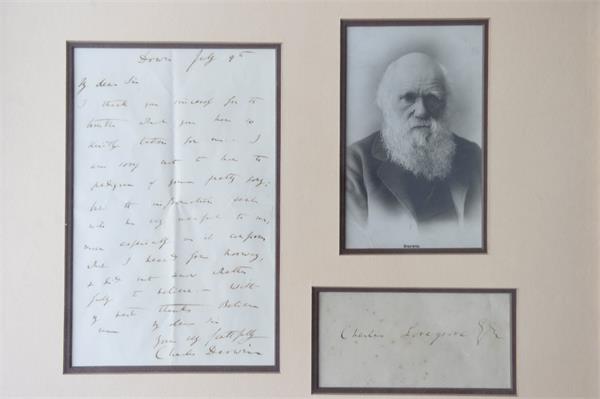 Down July 9th
My dear Sir
I thank you sincerely for the
trouble which you have so
kindly taken for me. — I
am sorry not to have the
pedigree of your pretty dog;
but the information
which is very useful to me,
more especially as it confirms
what I heard from Norway,
& did not know whether
fully to believe. — With
my best thanks Believe
me My dear Sir
Yours very faithfully
Charles Darwin
Darwin.
Charles Lovegrove Esq